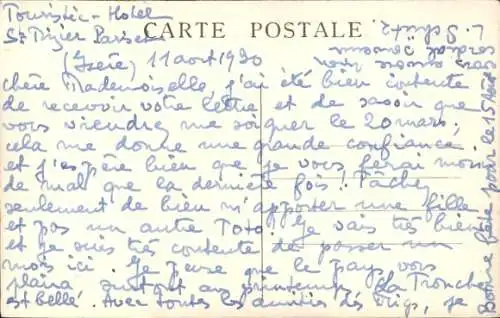 Touristic-Hotel
CARTE POSTALE
St Nizier Pariset
(Isère) 11 aout 1930
chère Mademoiselle, j'ai été bien contente
de recevoir votre lettre et de savoir que
vous viendrez me soigner le 20 mars;
cela me donne une grande confiance
et j'espère bien que je vous ferai moins
de mal que la dernière fois! Tâchez
seulement de bien m'apporter une fille
et pas un autre Toto! Je vais très bien
et je suis très contente de passer un
mois ici. Je pense que le pays vous
plaira, surtout au printemps. La Tronche
est belle. Avec toutes les amitiés des je
vous envoie mon
cordial
L.
Bonne fête pour le 15 Août